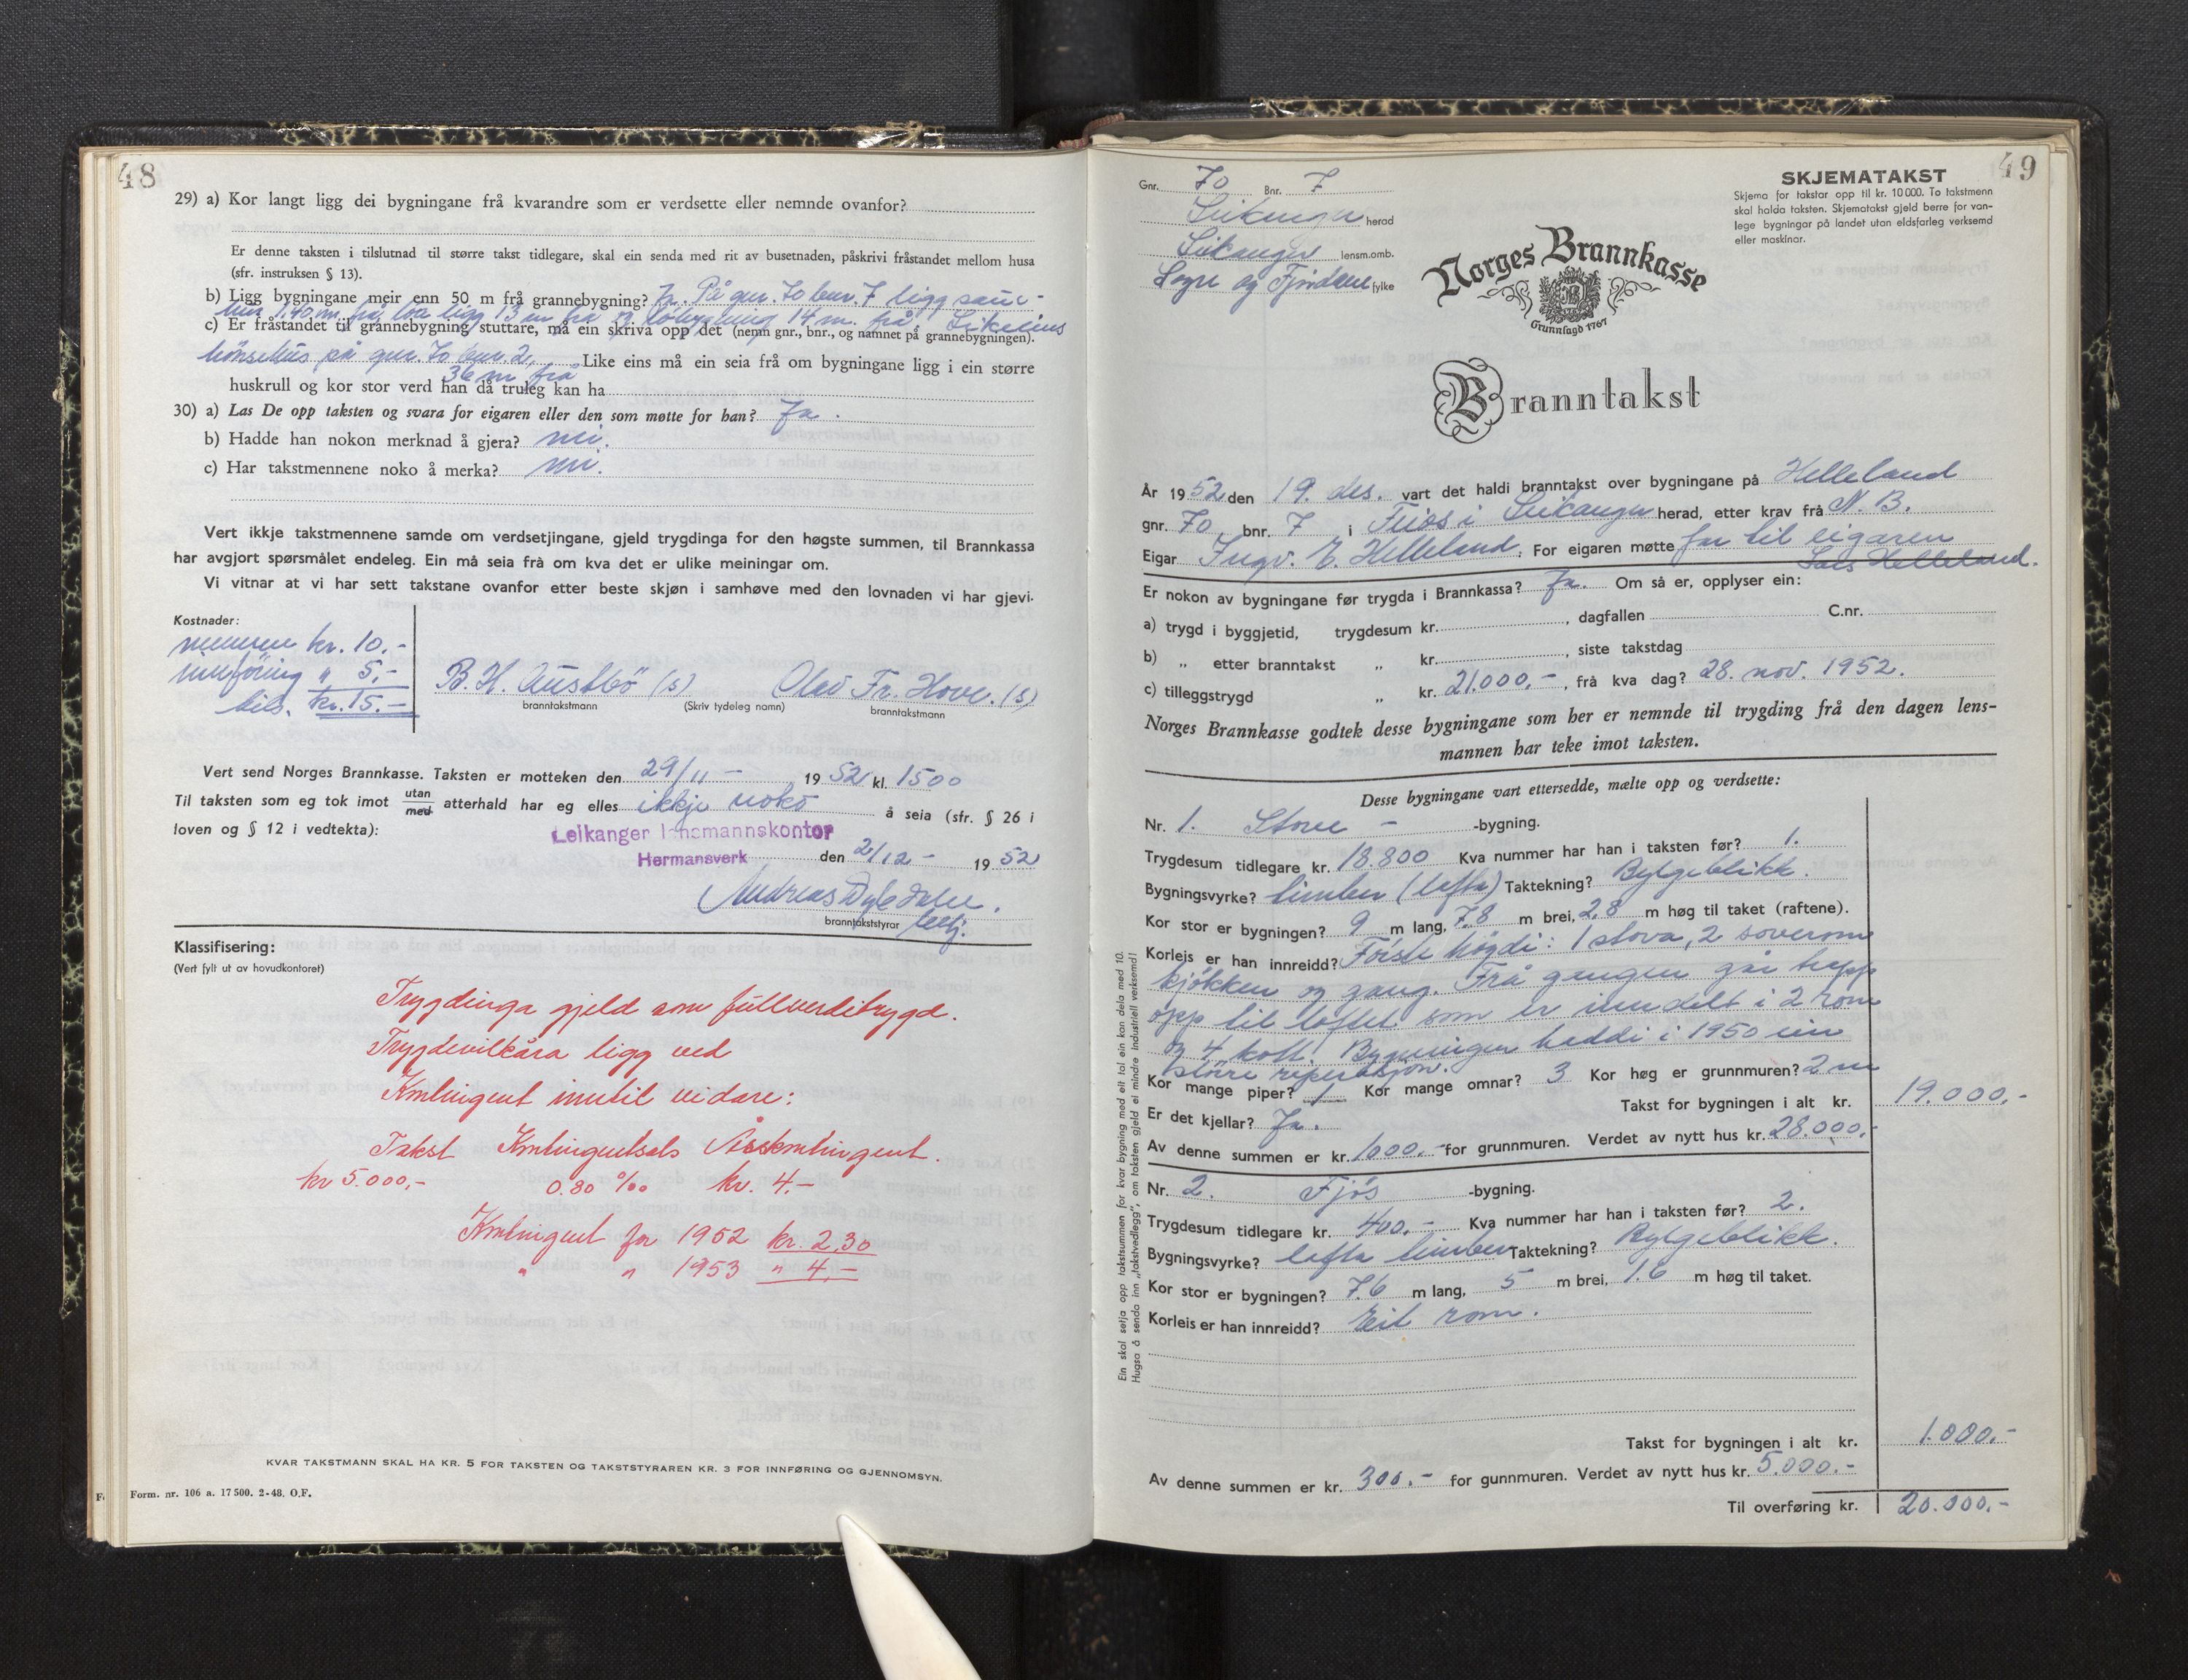 48
29) a) Kor langt ligg dei bygningane frå kvarandre som er verdsette eller nemnde ovanfor?
Er denne taksten i tilslutnad til større takst tidlegare, skal ein senda med rit av busetnaden, påskrivi fråstandet mellom husa
(sfr. instruksen § 13).
b) Ligg bygningane meir enn 50 m frå grannebygning? Ja. På gnr. 70 bnr. 7 ligg saue-
hus 1,40 m. frå, løa ligg 13 m frå og 14 m. frå,
c) Er fråstandet til grannebygning stuttare, må ein skriva opp det (nemn gnr., bnr., og namnet på grannebygningen).
hönsehus på gnr. 70 bnr. 2, Like eins må ein seia frå om bygningane ligg i ein større
36 m frå
huskrull og kor stor verd han då truleg kan ha
30) a) Las De opp taksten og svara for eigaren eller den som møtte for han? Ja.
b) Hadde han nokon merknad å gjera? nei.
c) Har takstmennene noko å merka? nei.
Vert ikkje takstmennene samde om verdsetjingane, gjeld trygdinga for den høgste summen, til Brannkassa
har avgjort spørsmålet endeleg. Ein må seia frå om kva det er ulike meiningar om.
Vi vitnar at vi har sett takstane ovanfor etter beste skjøn i samhøve med den lovnaden vi har gjevi.
Kostnader:
mennene kr. 10.-
innføring " 5,-
tils. kr. 15.-
B. H. Austbö (s) Olav Fr. Hove. (s)
branntakstmann (Skriv tydeleg namn) branntakstmann
Vert send Norges Brannkasse. Taksten er motteken den 29/11 - 1952 kl. 1500
Til taksten som eg tok imot utan
med atterhald har eg elles ikkje noko å seia (sfr. § 26 i
loven og § 12 i vedtekta):
Leikanger lensmannskontor
Hermansverk den 2/12 - 1952
Andreas Dvergsdal
branntakststyrar
Klassifisering:
(Vert fylt ut av hovudkontoret)
Trygdinga gjeld som fullverditrygd.
Trygdevilkåra ligg ved
Kontingent inntil vidare:
Takst Kontingentsats Årskontingent.
kr 5.000,- 0.80 ‰ kr. 4.-
Kontingent for 1952 kr. 2.30
" " 1953 " 4,-
KVAR TAKSTMANN SKAL HA KR. 5 FOR TAKSTEN OG TAKSTSTYRAREN KR. 3 FOR INNFØRING OG GJENNOMSYN.
Form. nr. 106 a. 17 500. 2-48. O.F.
49
Gnr. 70 Bnr. 7
Leikanger herad
Leikanger lensm.omb.
Sogn og Fjordane fylke
SKJEMATAKST
Skjema for takstar opp til kr. 10 000. To takstmenn
skal halda taksten. Skjematakst gjeld berre for van-
lege bygningar på landet utan eldsfarleg verksemd
eller maskinar.
Norges Brannkasse
Grunnlagd 1767
Branntakst
År 1952 den 19. des. vart det haldi branntakst over bygningane på Helleland
gnr. 70 bnr. 7 i Feios i Leikanger herad, etter krav frå N. B.
Eigar Ingv. E. Helleland. For eigaren møtte far til eigaren
Lars Helleland.
Er nokon av bygningane før trygda i Brannkassa? Ja. Om så er, opplyser ein:
a) trygd i byggjetid, trygdesum kr. , dagfallen C.nr.
b) „ etter branntakst „ kr. , siste takstdag
c) tilleggstrygd „ kr. 21.000,-, frå kva dag? 28. nov. 1952.
Norges Brannkasse godtek desse bygningane som her er nemnde til trygding frå den dagen lens-
mannen har teke imot taksten.
Desse bygningane vart ettersedde, mælte opp og verdsette:
Nr. 1. Stove - -bygning.
Trygdesum tidlegare kr. 18.800 Kva nummer har han i taksten før? 1.
Bygningsvyrke? timber (lafta) Taktekning? Bylgeblikk.
Kor stor er bygningen? 9 m lang, 7,8 m brei, 2,8 m høg til taket (raftene).
Korleis er han innreidd? Förste högdi: 1 stova, 2 soverom
kjökken og gang. Frå gangen går trapp
opp til loftet som er inndelt i 2 rom
og 4 kott. Bygningen hadde i 1950 ein
större reperasjon.
Kor mange piper? 1 Kor mange omnar? 3 Kor høg er grunnmuren? 2 m
Er det kjellar? Ja. Takst for bygningen i alt kr. 19.000,-
Av denne summen er kr. 1000.- for grunnmuren. Verdet av nytt hus kr. 28.000.-
Nr. 2. Fjös -bygning.
Trygdesum tidlegare kr. 400.- Kva nummer har han i taksten før? 2.
Bygningsvyrke? lafta timber Taktekning? Bylgeblikk.
Kor stor er bygningen? 7.6 m lang, 5 m brei, 1.6 m høg til taket.
Korleis er han innreidd? Eit rom.
Takst for bygningen i alt kr. 1.000.-
Av denne summen er kr. 300.- for gunnmuren. Verdet av nytt hus kr. 5.000.-
Til overføring kr. 20.000,-
Ein skal setja opp takstsummen for kvar bygning med eit tal ein kan dela med 10.
Hugsa å senda inn „takstvedlegg", om taksten gjeld ei mindre industriell verksemd!